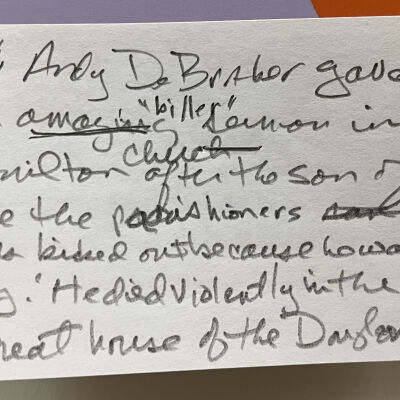 " Andy DeBraber gave
amazing "killer" sermon in
church
milton after the son of
e the parishioners
s kicked out because he wa
g. 'He died violently in the
reat house of the Day